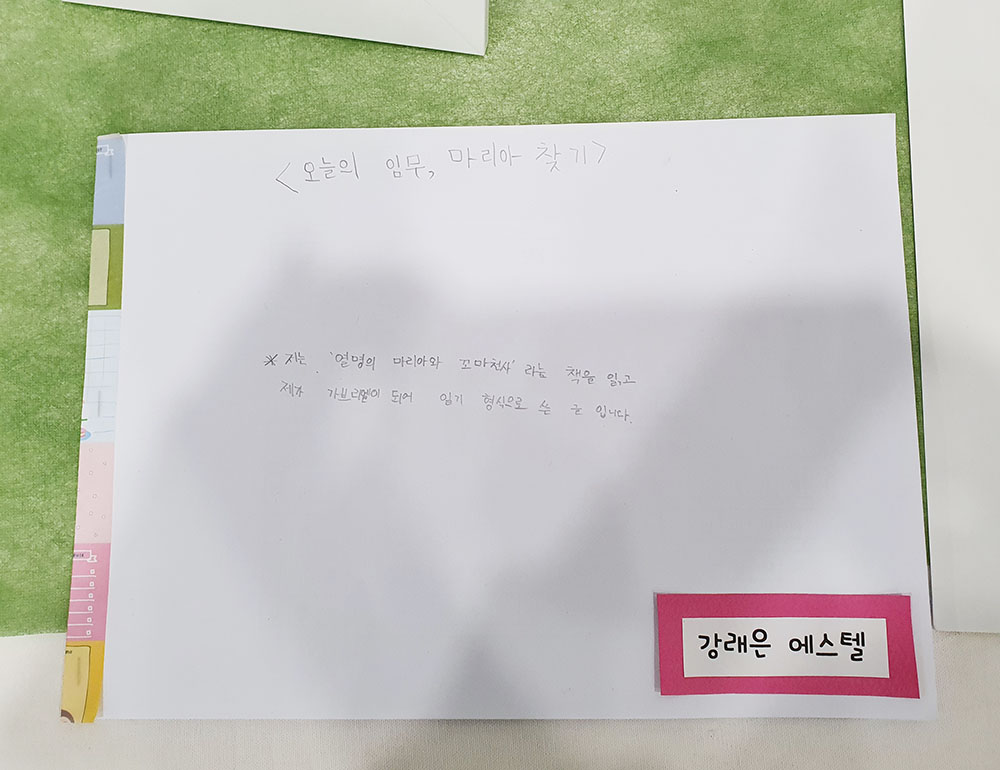 <오늘의 임무, 마리아 찾기>
※ 저는 '열명의 마리아와 꼬마천사' 라는 책을 읽고
제가 가브리엘이 되어 일기 형식으로 쓴 글 입니다.
강래은 에스텔